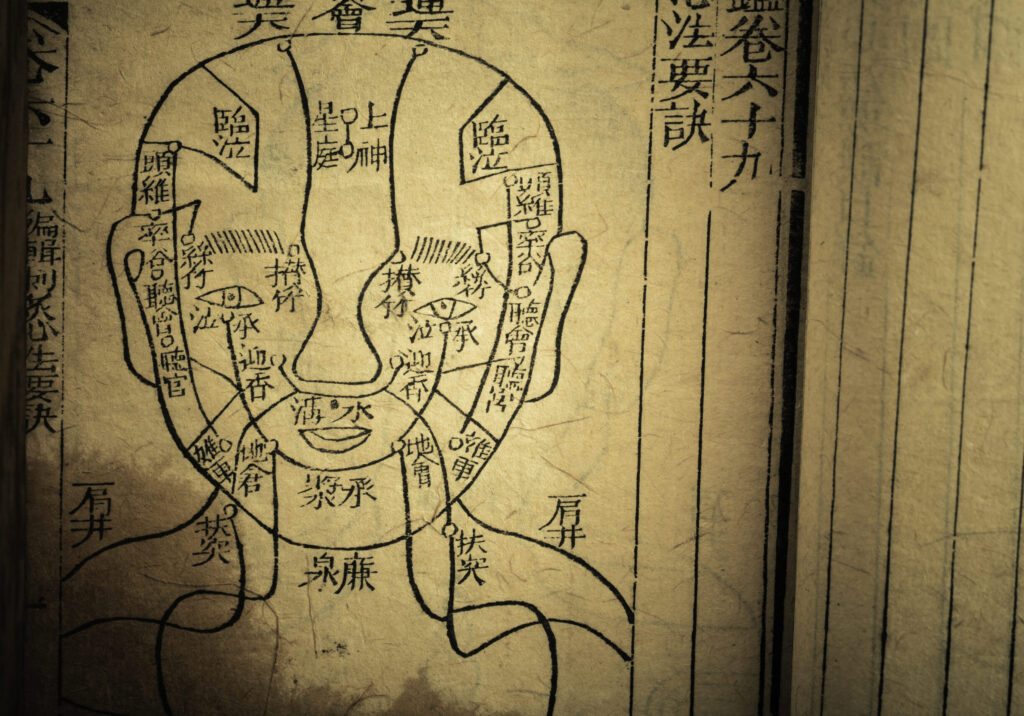 鑑卷六十九
法要訣
通天
會
通天
臨泣
上星
神庭
臨泣
頭維
頭維
率谷
率谷
絲竹
攢竹
攢竹
絲竹
聽會
聽會
承泣
承泣
聽宮
聽官
迎香
迎香
水溝
地倉
地倉
承漿
肩井
肩井
扶突
扶突
廉泉
卷六十九
編輯刺灸心法要訣